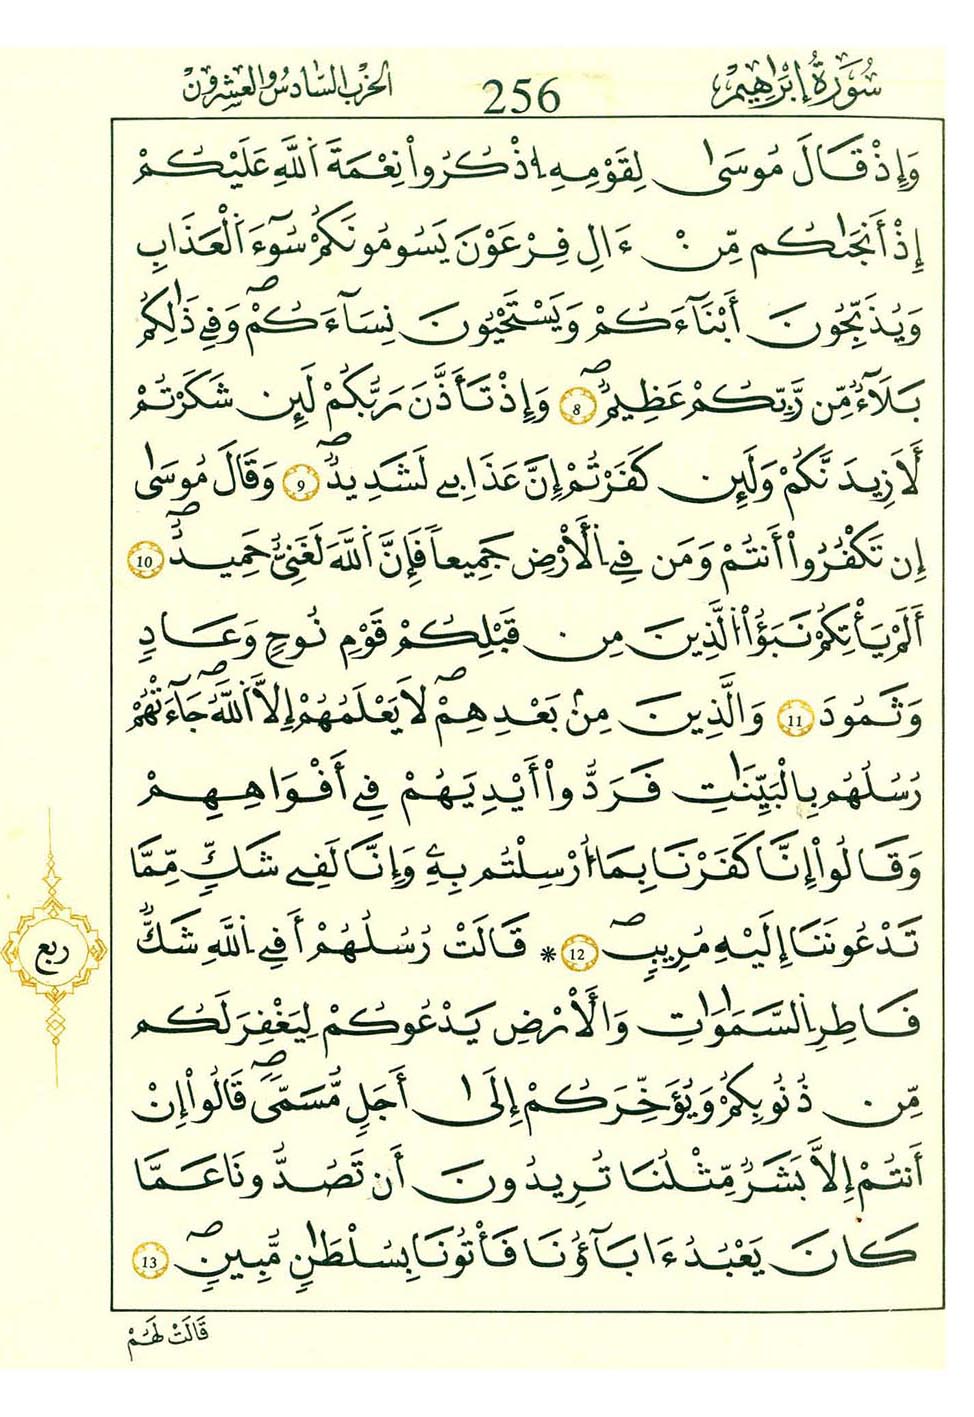 سُورَةُ إِبْرَاهِيمَ 256 الحِزْبُ السَّادِسُ وَالعِشْرُونَ
وَإِذْ قَالَ مُوسَىٰ لِقَوْمِهِ اِ۟ذْكُرُواْ نِعْمَةَ اَ۬للَّهِ عَلَيْكُمْ
إِذْ أَنجَىٰكُم مِّنْ ءَالِ فِرْعَوْنَ يَسُومُونَكُمْ سُوٓءَ اَ۬لْعَذَابِ
وَيُذَبِّحُونَ أَبْنَآءَكُمْ وَيَسْتَحْيُونَ نِسَآءَكُمْ وَفِے ذَٰلِكُم
بَلَآءٌ مِّن رَّبِّكُمْ عَظِيمٌ 8 وَإِذْ تَأَذَّنَ رَبُّكُمْ لَئِن شَكَرْتُمْ
لَأَزِيدَنَّكُمْ وَلَئِن كَفَرْتُمْ إِنَّ عَذَابِے لَشَدِيدٌ 9 وَقَالَ مُوسَىٰ
إِن تَكْفُرُواْ أَنتُمْ وَمَن فِے اِ۬لْأَرْضِ جَمِيعاً فَإِنَّ اَ۬للَّهَ لَغَنِيٌّ حَمِيدٌ 10
أَلَمْ يَأْتِكُمْ نَبَؤُاْ اُ۬لَّذِينَ مِن قَبْلِكُمْ قَوْمِ نُوحٍ وَعَادٍ
وَثَمُودَ 11 وَالَّذِينَ مِنۢ بَعْدِهِمْ لَا يَعْلَمُهُمْ إِلَّا اَ۬للَّهُ جَآءَتْهُمْ
رُسُلُهُم بِالْبَيِّنَٰتِ فَرَدُّواْ أَيْدِيَهُمْ فِے أَفْوَاهِهِمْ
وَقَالُواْ إِنَّا كَفَرْنَا بِمَا أُرْسِلْتُم بِهِۦ وَإِنَّا لَفِے شَكٍّ مِّمَّا
تَدْعُونَنَا إِلَيْهِ مُرِيبٍ 12 * قَالَتْ رُسُلُهُمْ أَفِے اِ۬للَّهِ شَكٌّ
ربع
فَاطِرِ اِ۬لسَّمَٰوَٰتِ وَالْأَرْضِ يَدْعُوكُمْ لِيَغْفِرَ لَكُم
مِّن ذُنُوبِكُمْ وَيُؤَخِّرَكُمْ إِلَىٰ أَجَلٍ مُّسَمّىً قَالُواْ إِنْ
أَنتُمْ إِلَّا بَشَرٌ مِّثْلُنَا تُرِيدُونَ أَن تَصُدُّونَا عَمَّا
كَانَ يَعْبُدُ ءَابَآؤُنَا فَأْتُونَا بِسُلْطَٰنٍ مُّبِينٍ 13
قَالَتْ لَهُمْ